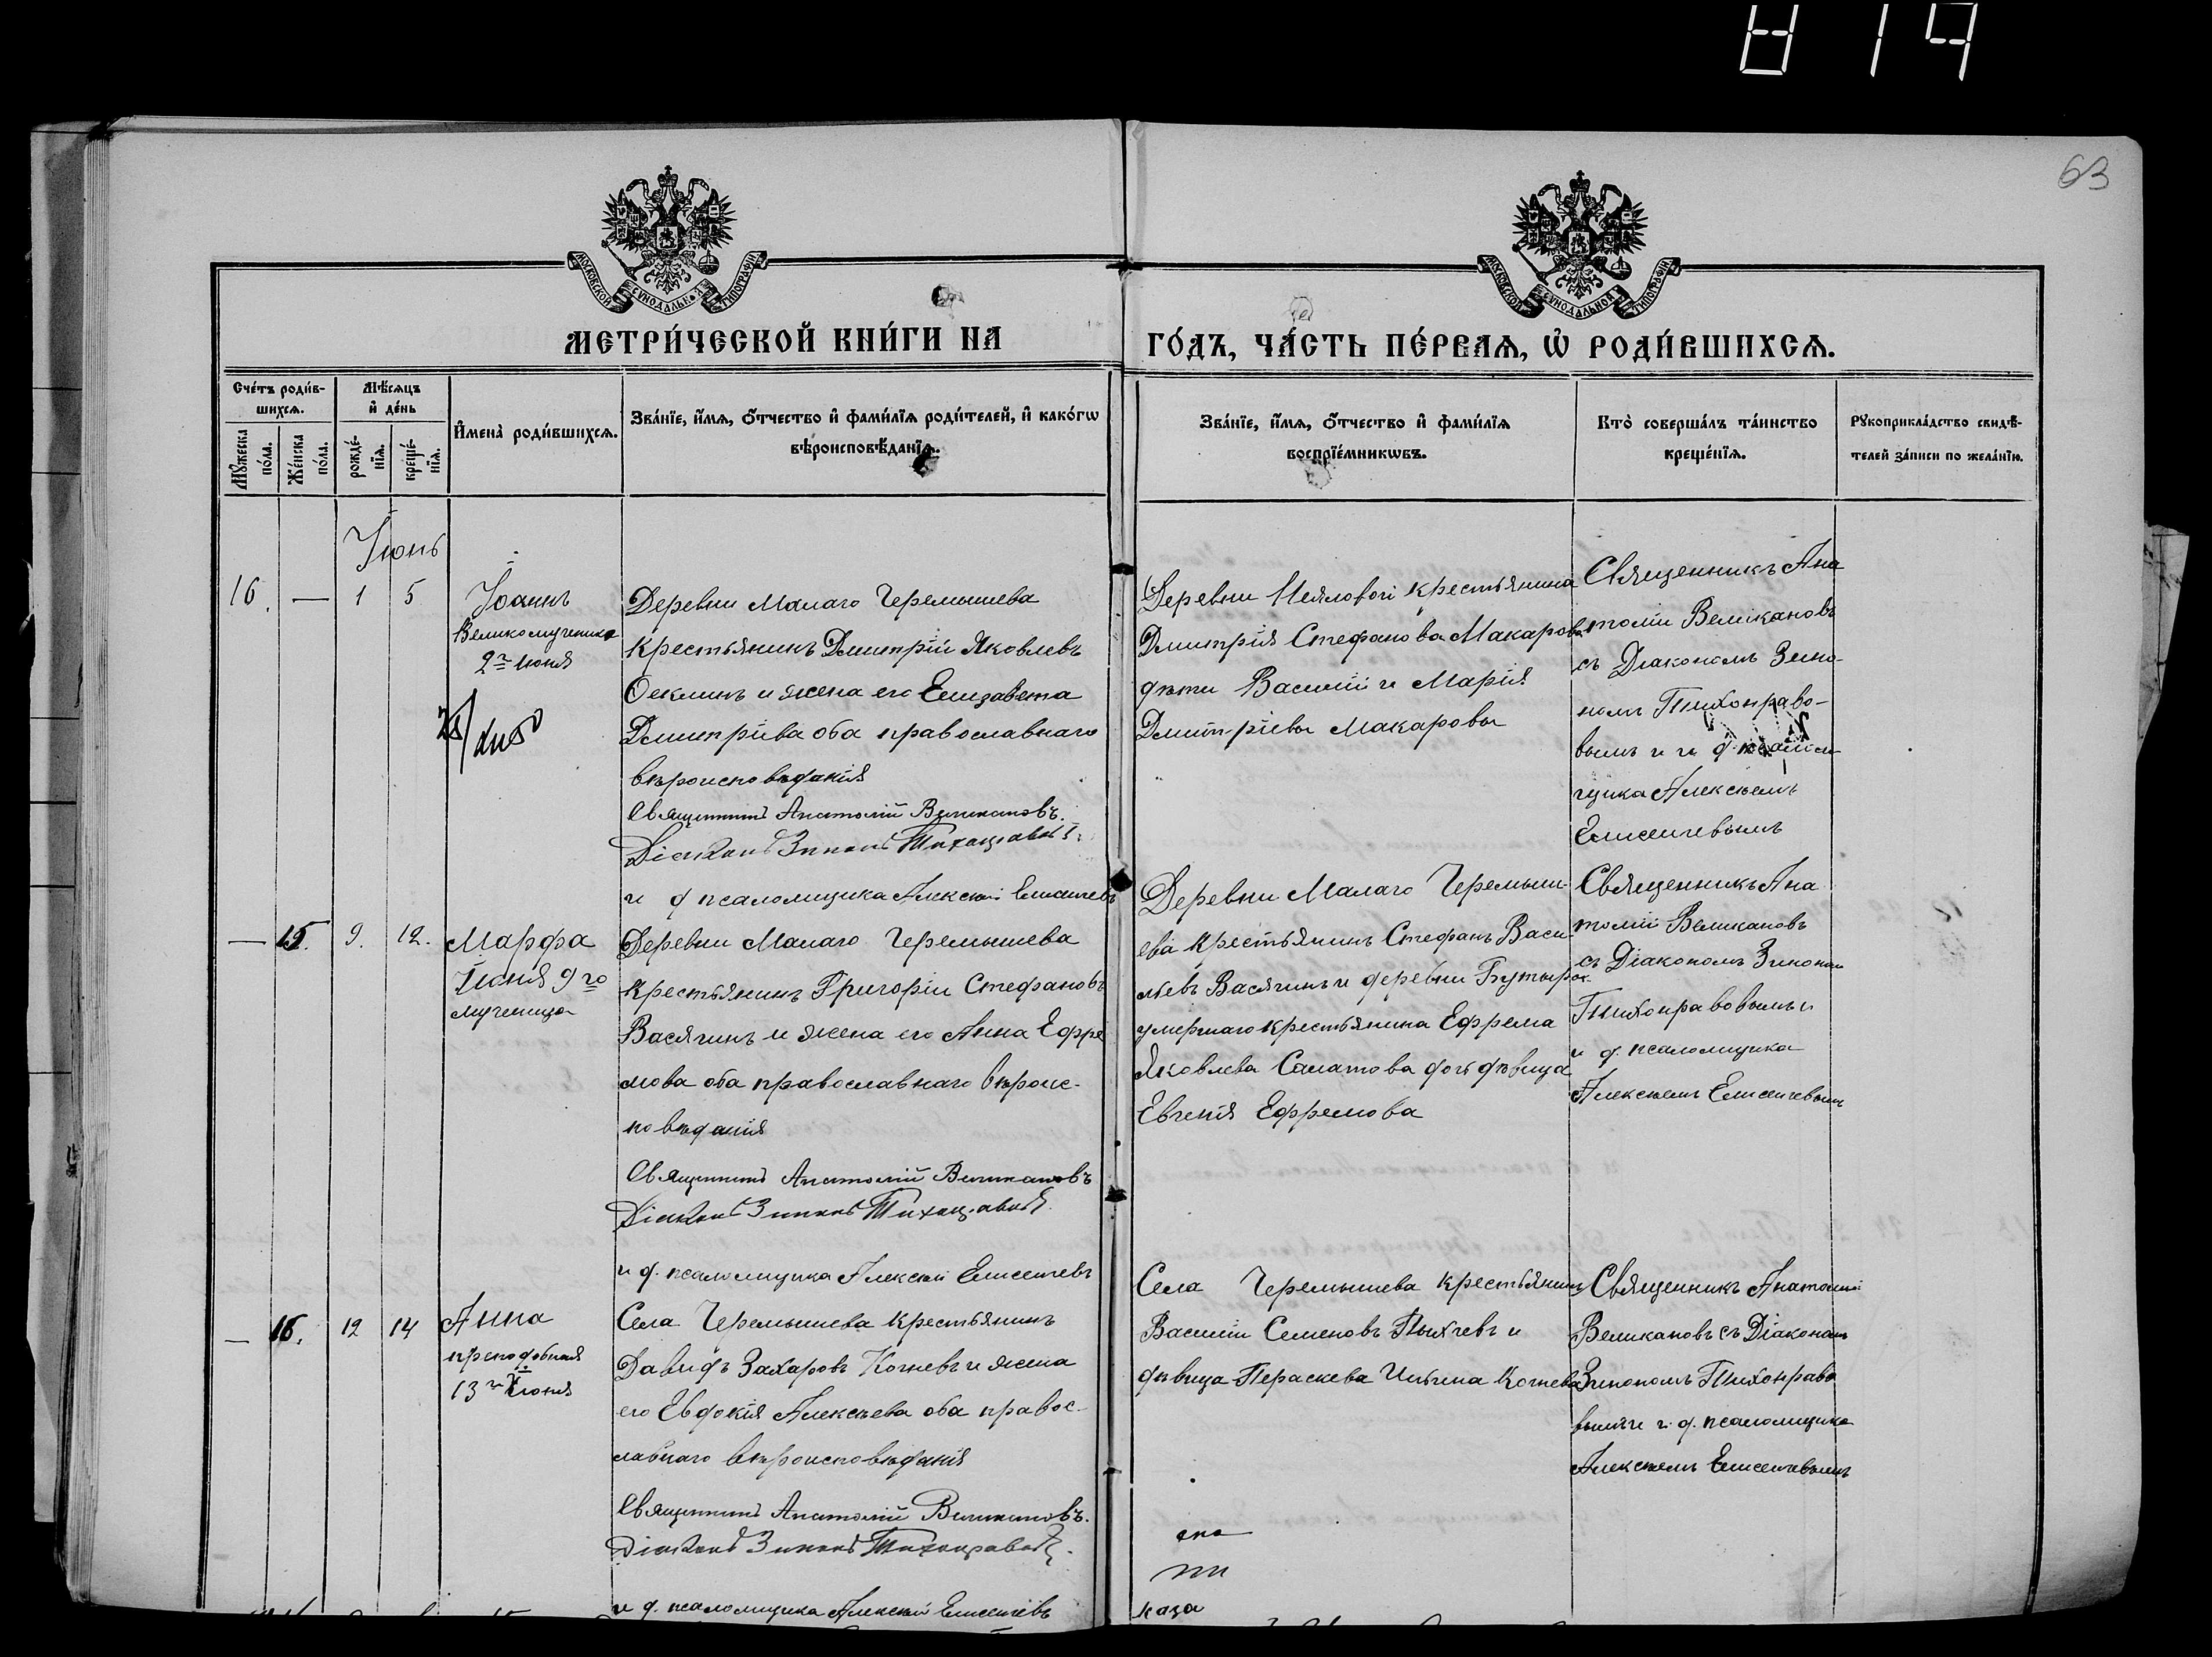 814
63
МОСКОВСКОЙ СѴНОДАЛЬНОЙ ТИПОГРАФІИ
МОСКОВСКОЙ СѴНОДАЛЬНОЙ ТИПОГРАФІИ
МЕТРИ́ЧЕСКОЙ КНИ́ГИ НА
ГО́ДЪ, ЧА́СТЬ ПЕ́РВАѦ, Ѡ҆ РОДИ́ВШИХСѦ.
Сче́тъ роди́в-
шихсѧ.
Мꙋ́жеска по́ла.
Же́нска по́ла.
Мѣ́сѧцъ
и҆ де́нь
рожде́-
нїѧ.
креще́-
нїѧ.
И҆мена̀ роди́вшихсѧ.
Зва́нїе, и҆́мѧ, ѻ҆́тчество и҆ фами́лїѧ роди́телей, и҆ како́гѡ
вѣроисповѣ́данїѧ.
Зва́нїе, и҆́мѧ, ѻ҆́тчество и҆ фами́лїѧ
воспрїе́мникѡвъ.
Кто̀ соверша́лъ та́инство
креще́нїѧ.
Рꙋкоприкла́дство свидѣ́-
телей за́писи по жела́нїю.
Іюнь
16. — 1 5
Іоаннъ
Великомученика
2го Іюня
Деревни Малаго Черемышева
крестьянинъ Дмитрій Яковлевъ
Ѳеклинъ и жена его Елизавета
Дмитріева оба православнаго
вѣроисповѣданія
Священникъ Анатолій Великановъ.
Діаконъ Зинонъ Тихонравовъ.
и д псаломщика Алексѣй Елисеичевъ
Деревни крестьянина
Дмитрія Стефанова Макарова
дѣти Василій и Марія
Дмитріевы Макаровы
Священникъ Ана
толій Великановъ
съ Діакономъ Зино-
номъ Тихонраво-
вымъ и и д. псалом
щика Алексѣемъ
Елисеичевымъ
— 15. 9. 12.
Марфа
Іюня 9го
мученица
Деревни Малаго Черемышева
крестьянинъ Григорій Стефановъ
Васягинъ и жена его Анна Ефре
мова оба православнаго вѣроис-
повѣданія
Священникъ Анатолій Великановъ
Діаконъ Зинонъ Тихонравовъ.
и д. псаломщика Алексѣй Елисеичевъ
Деревни Малаго Черемыш-
ева крестьянинъ Стефанъ Васи
льевъ Васягинъ и деревни Бутырок
умершаго крестьянина Ефрема
Яковлева Саматова дочь дѣвица
Евгенія Ефремова
Священникъ Ана
толій Великановъ
съ Діакономъ Зинономъ
Тихонравовымъ и
и д. псаломщика
Алексѣемъ Елисеичевымъ
— 16. 12 14
Анна
преподобная
13го Іюня
Села Черемышева крестьянинъ
Давидъ Захаровъ Кочневъ и жена
его Евдокія Алексѣева оба правос-
лавнаго вѣроисповѣданія
Священникъ Анатолій Великановъ.
Діаконъ Зинонъ Тихонравовъ.
и д. псаломщика Алексѣй Елисеичевъ
Села Черемышева крестьянинъ
Василій Семеновъ Пыхчевъ и
дѣвица Параскева Ильина Кочнева
Священникъ Анатолій
Великановъ съ Діакономъ
Зинономъ Тихонраво
вымъ и и д. псаломщика
Алексѣемъ Елисеичевымъ